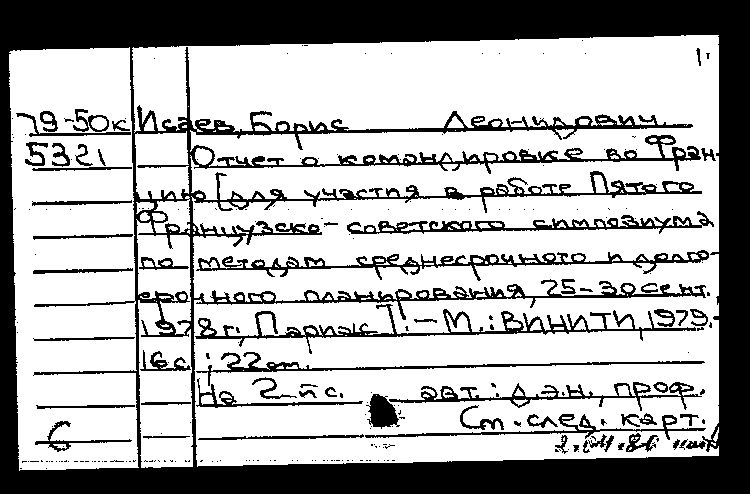 79-50к Исаев, Борис Леонидович.
5321 Отчет о командировке во Фран-
цию [для участия в работе Пятого
Французско-советского симпозиума
по методам среднесрочного и долго-
срочного планирования, 25-30 сент.
1978 г., Париж]. - М.: ВИНИТИ, 1979.-
16 с.; 22 см.
На 2-й с. авт.: д.э.н., проф.
См. след. карт.
6